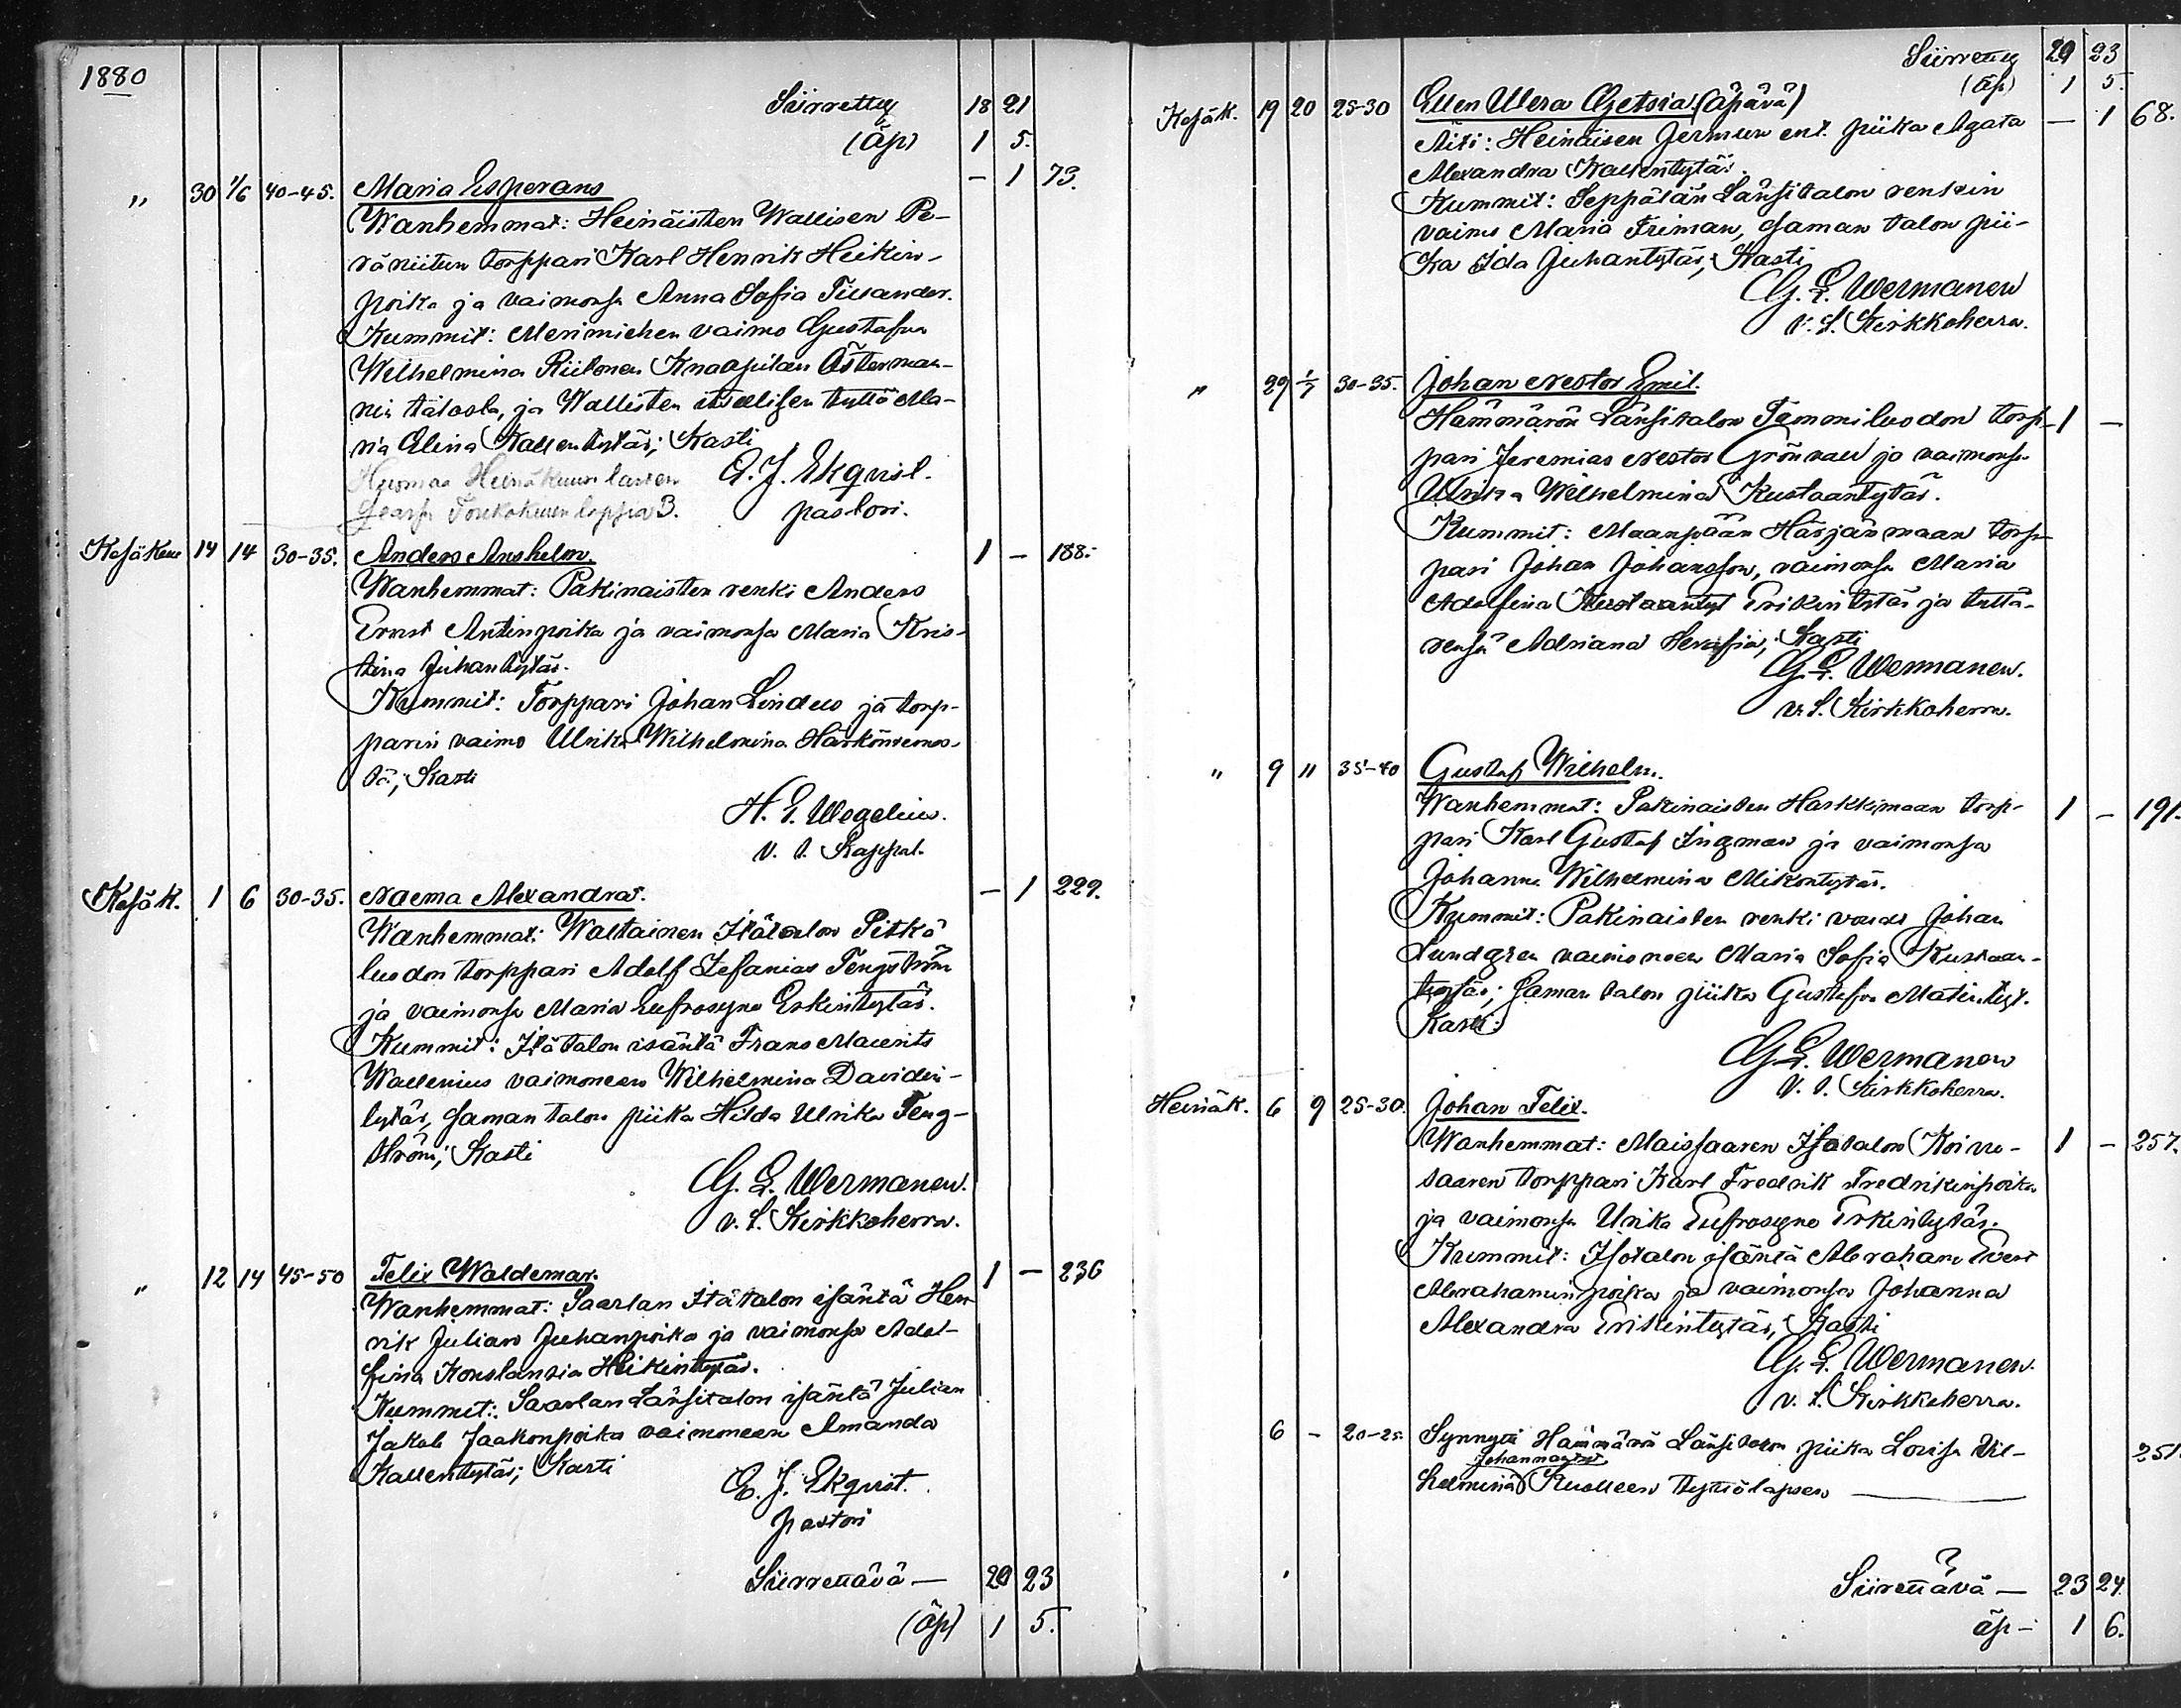 1880
Siirretty 18 21
(Äp) 1 5.
" 30 1/6 40-45. Maria Esperans — 1 73.
Wanhemmat: Heinäisten Wallisen Pe-
räniitun torppari Karl Henrik Heikin-
poika ja vaimonsa Anna Sofia Tillander.
Kummit: Merimiehen vaimo Gustafva
Wilhelmina Riikonen Knaapilan Österman-
nin talosta, ja Wallisten itsellisen tyttö Ma-
ria Elina Kallentytär; Kasti
Heinäkuun E. J. Ekqvist.
Toukokuun pastori.
Kesäkuu 14 14 30-35. Anders Anshelm. 1 — 188.
Wanhemmat: Pakinaisten renki Anders
Ernst Antinpoika ja vaimonsa Maria Kris-
tina Juhantytär.
Kummit: Torppari Johan Lindus ja torp-
parin vaimo Ulrika Wilhelmina
tä; Kasti
H. E. Wegelius.
v. t. Kappal.
Kesäk. 1 6 30-35. Naema Alexandra. — 1 229.
Wanhemmat: Waltainen Itätalon Pitkä
luodon torppari Adolf Stefanias Tengström
ja vaimonsa Maria Eufrosyne Erkintytär.
Kummit: Itätalon isäntä Frans Maurits
Wallenius vaimoneen Wilhelmina Davidin-
tytär, saman talon piika Hilda Ulrika Teng-
ström; Kasti
G. E. Wermanen.
v. t. Kirkkoherra.
" 12 14 45-50 Felix Waldemar. 1 — 236
Wanhemmat: Saarlan Itätalon isäntä Hen-
rik Julian Juhanpoika ja vaimonsa Adol-
fina Konstantia Heikintytär.
Kummit: Saarlan Länsitalon isäntä Julian
Jakob Jaakonpoika vaimoneen Amanda
Kallentytär; Kasti
E. J. Ekqvist.
pastori
Siirrettävä — 20 23
(äp) 1 5.
Siirretty 20 23
(äp) 1 5.
Kesäk. 19 20 25-30 Ellen Wera (äpärä) — 1 68.
Äiti: Heinäisen ent. piika Agata
Alexandra Kallentytär.
Kummit: Seppälän Länsitalon renkin
vaimo Maria Friman, saman talon pii-
ka Ida Juhantytär; Kasti
G. E. Wermanen
v. t. Kirkkoherra.
" 29 1/7 30-35. Johan Nestor Emil.
Hammärön Länsitalon Tammiluodon torp- 1 —
pari Jeremias Nestor Grönvall ja vaimonsa
Ulrika Wilhelmina Kustaantytär.
Kummit: Maanpään Härjänmaan torp-
pari Johan Johansson, vaimonsa Maria
Adolfina Kustaantyt Erikintytär ja tyttä-
rensä Adriana Serafia; Kasti
G. E. Wermanen.
v. t. Kirkkoherra.
" 9 11 35-40 Gustaf Wilhelm.
Wanhemmat: Pakinaisten Harkkimaan torp- 1 — 191.
pari Karl Gustaf Ingman ja vaimonsa
Johanna Wilhelmina Mikontytär.
Kummit: Pakinaisten renki vouti Johan
Lundgren vaimoneen Maria Sofia Kustaan-
tytär; saman talon piika Gustafva Matintyt.
Kasti:
G. E. Wermanen
v. t. Kirkkoherra.
Heinäk. 6 9 25-30. Johan Felix.
Wanhemmat: Maissaaren Isotalon Koivu- 1 — 257.
saaren torppari Karl Fredrik Fredrikinpoika
ja vaimonsa Ulrika Eufrosyne Erkintytär.
Kummit: Isotalon isäntä Abraham Evert
Abrahaminpoika ja vaimonsa Johanna
Alexandra Erikintytär, Kasti
G. E. Wermanen.
v. t. Kirkkoherra.
6 — 20-25. Synnytti Hammärö Länsitalon piika Lovisa Wil- 251.
Johannantyt
helmina Kuolleen tyttölapsen
Siirrettävä — 23 24.
äp — 1 6.